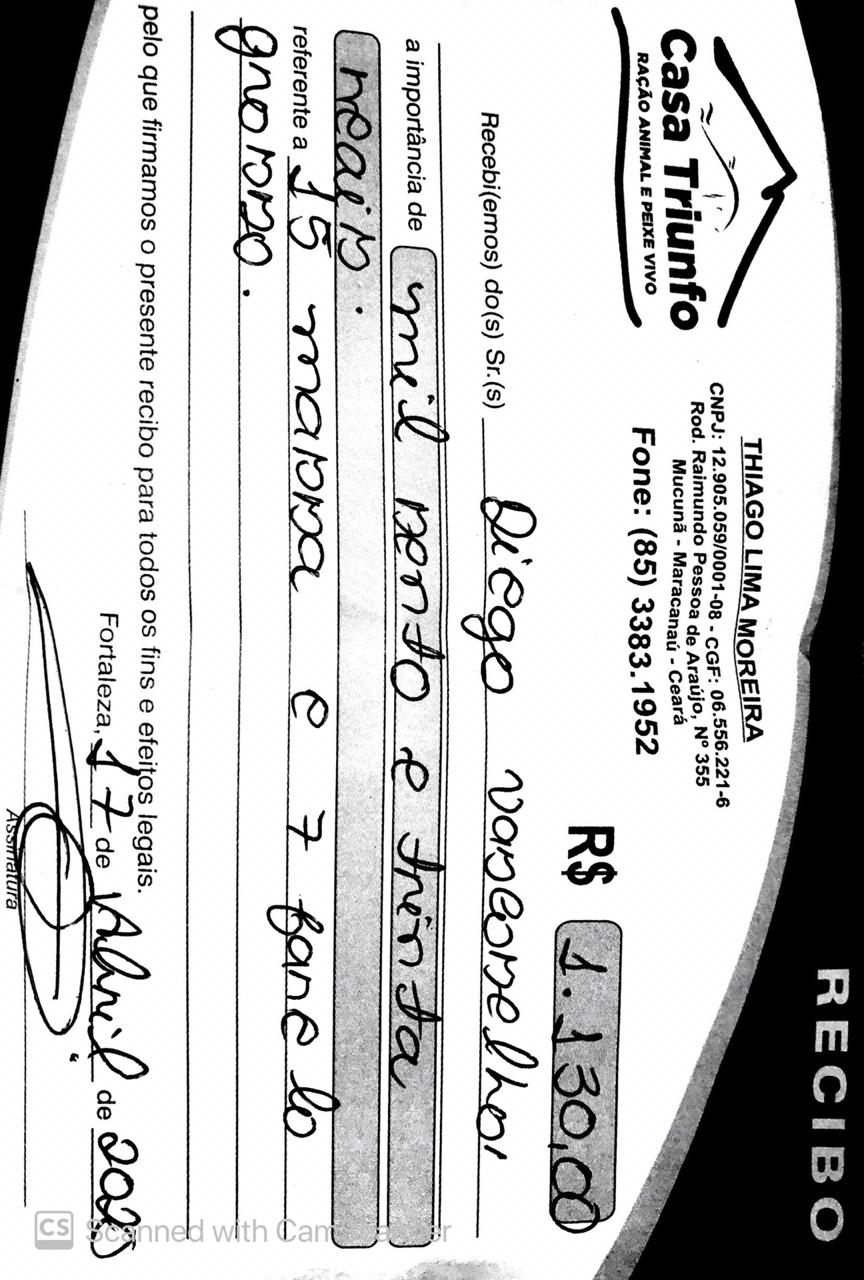 RECIBO
Casa Triunfo
RAÇÃO ANIMAL E PEIXE VIVO
THIAGO LIMA MOREIRA
CNPJ: 12.905.059/0001-08 - CGF: 06.556.221-6
Rod. Raimundo Pessoa de Araújo, Nº 355
Mucunã - Maracanaú - Ceará
Fone: (85) 3383.1952
R$ 1.130,00
Recebi(emos) do(s) Sr.(s) Diego
a importância de mil cento e trinta
reais.
referente a 15 massa e 7 farelo
grosso.
pelo que firmamos o presente recibo para todos os fins e efeitos legais.
Fortaleza, 17 de Abril de
Assinatura
CS Scanned with CamScanner